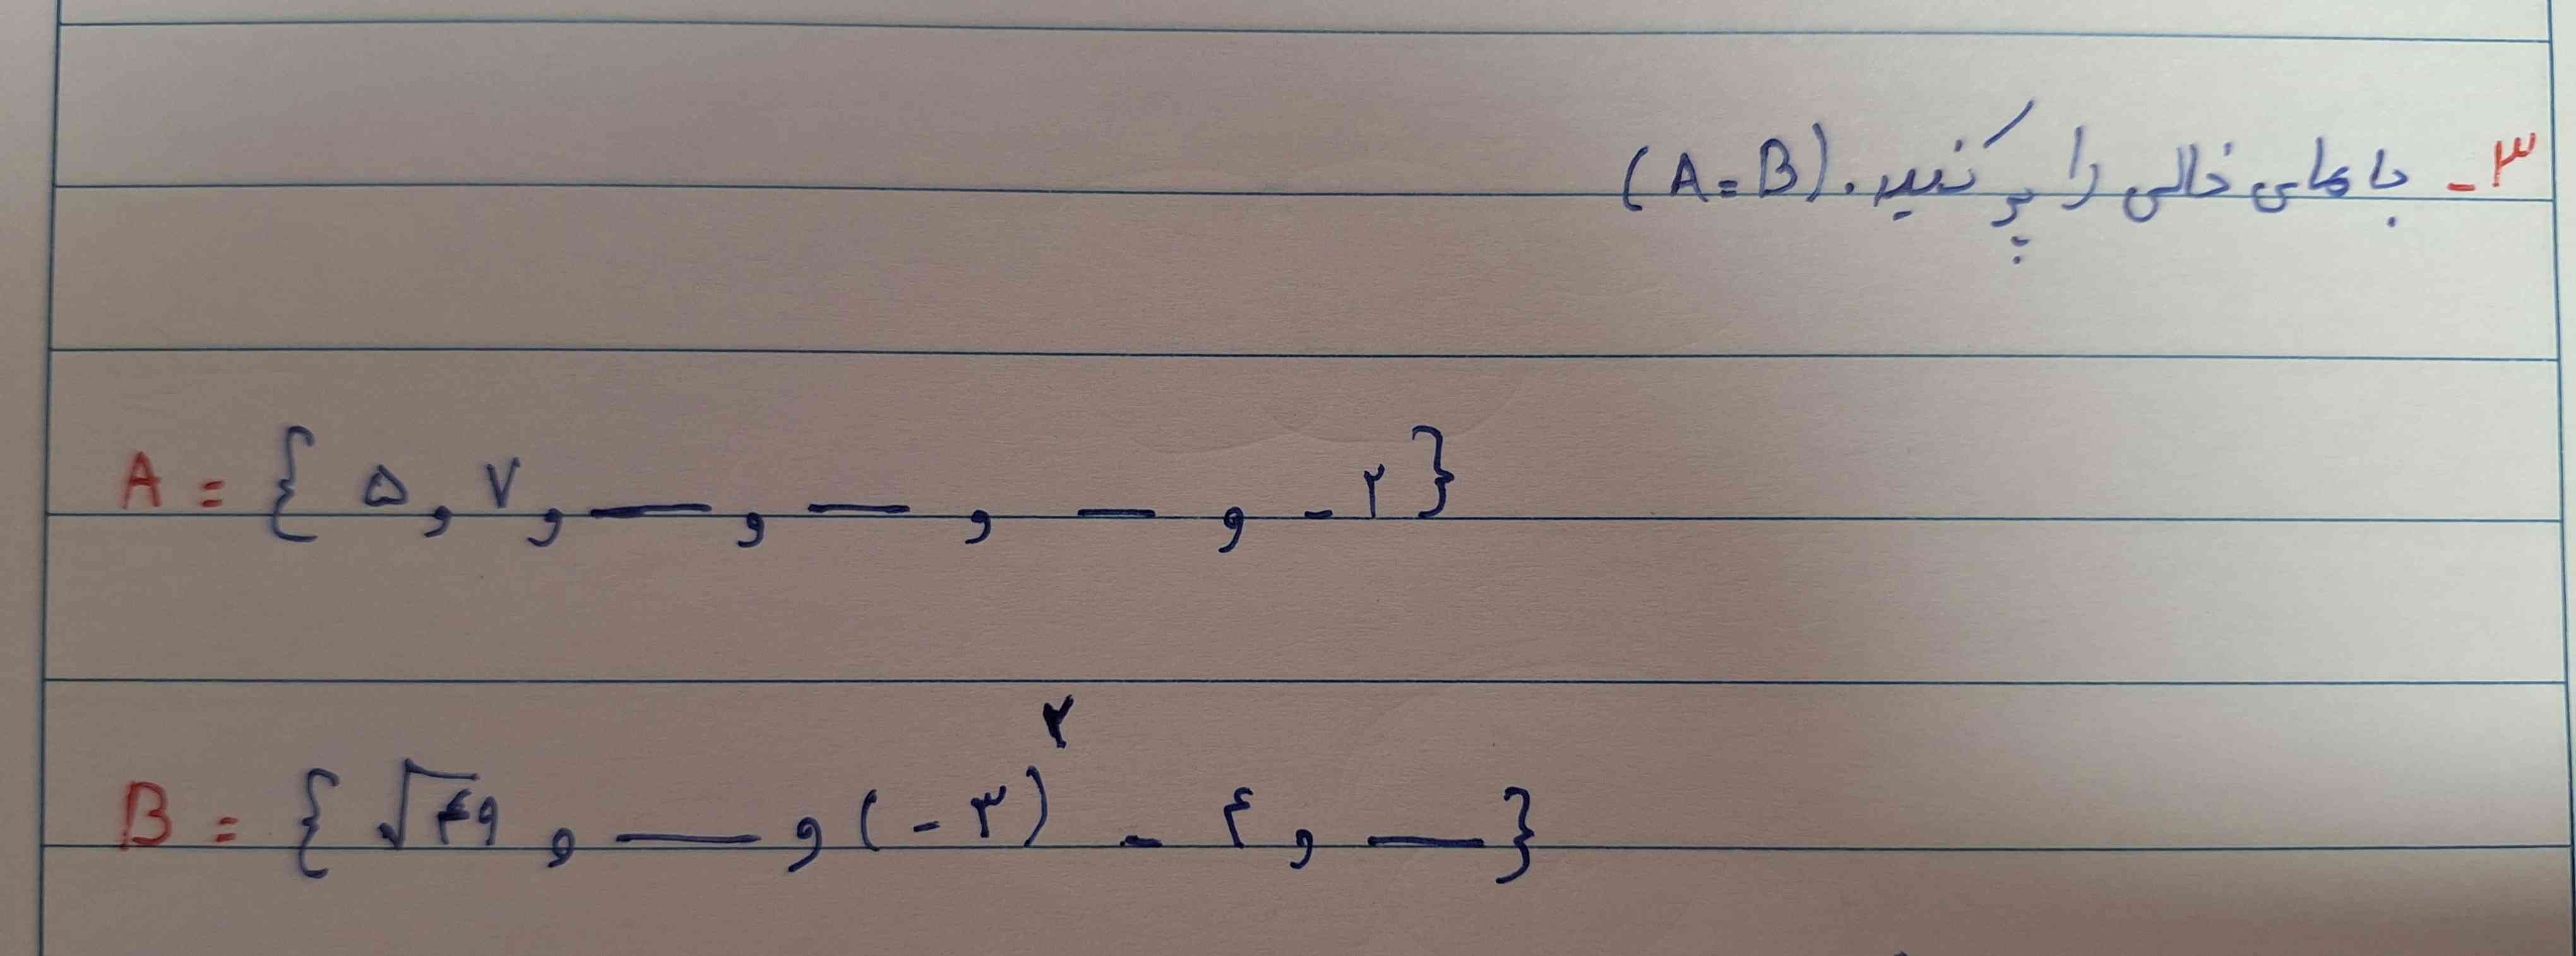 ۳- جاهای خالی را پر کنید. (A=B)
A = { ۵ , ۷ , __ , __ , __ , -۲ }
B = { √۴۹ , __ , (-۳)^۲ - ۴ , __ }